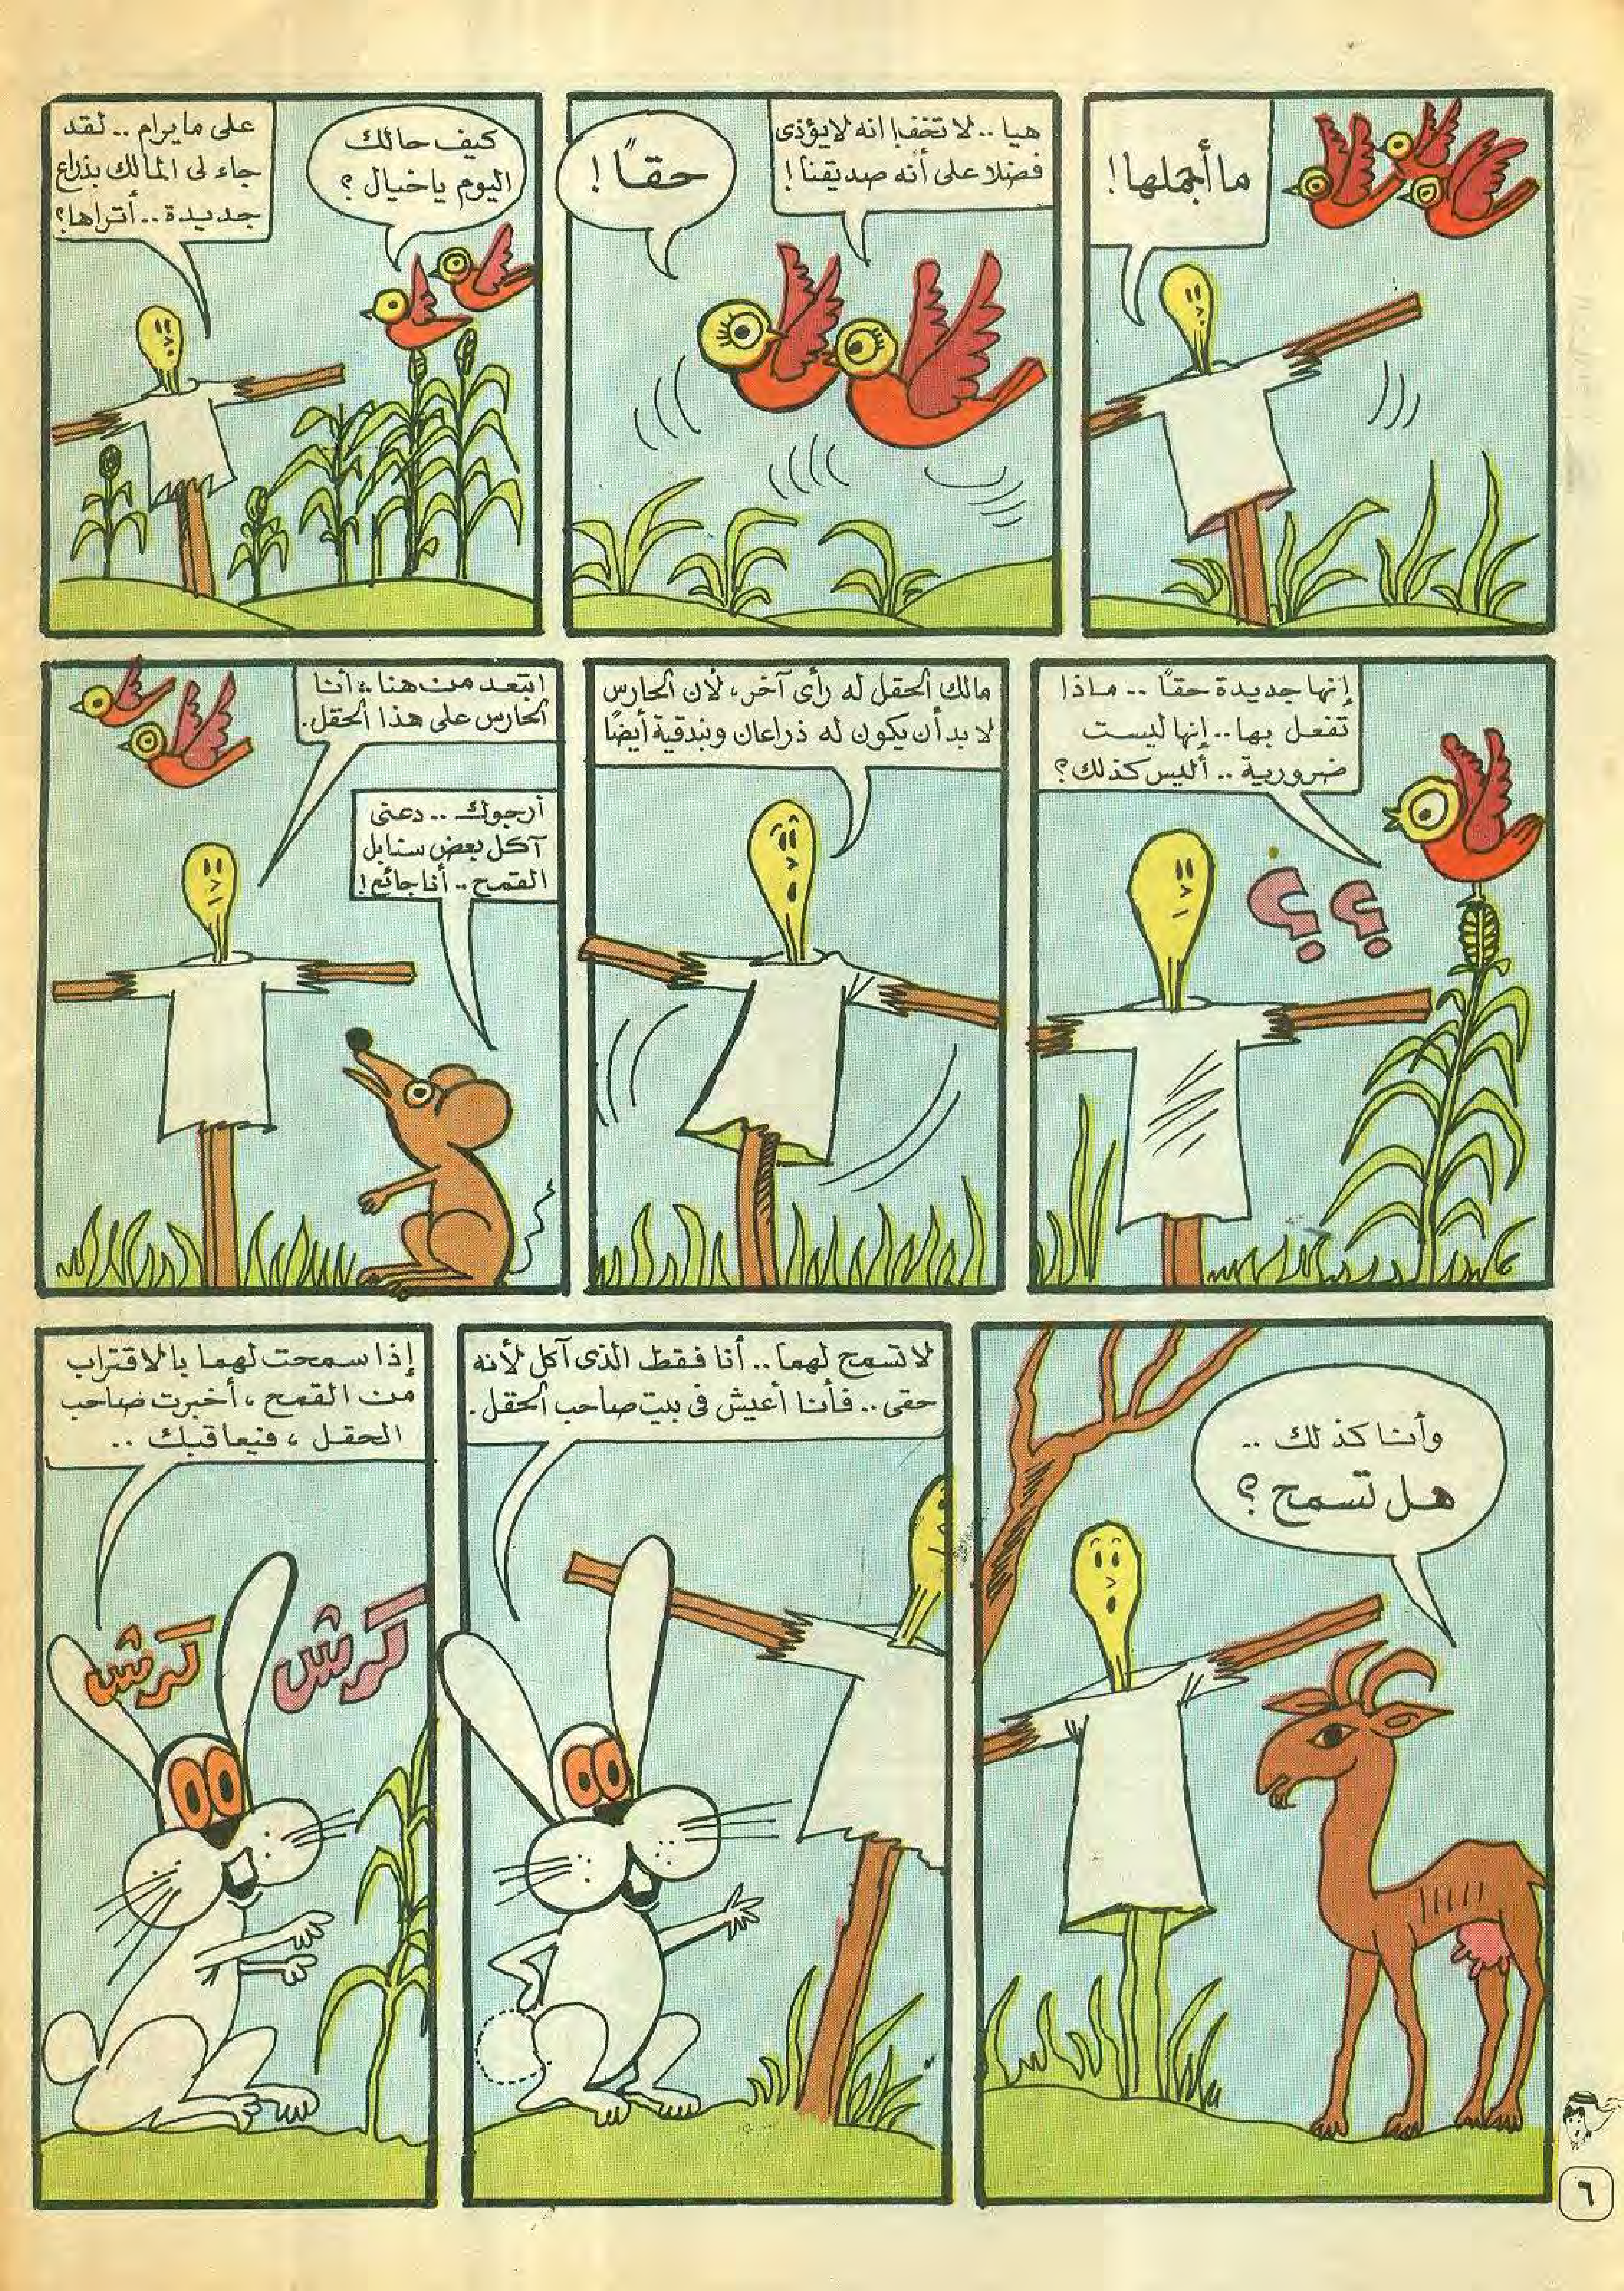 ما أجملها!
هيا .. لا تخف! انه لايؤذى
فضلا على أنه صديقنا!
حقـًا!
كيف حالك
اليوم ياخيال؟
على مايرام .. لقد
جاء لى المالك بذراع
جديدة .. أتراها؟
إنها جديدة حقًا .. ماذا
تفعل بها .. إنها ليست
ضرورية .. أليس كذلك؟
؟ ؟
مالك الحقل له رأى آخر، لأن الحارس
لا بد أن يكون له ذراعان وبندقية أيضًا
ابتعد من هنا، أنا
الحارس على هذا الحقل.
أرجوك .. دعنى
آكل بعض سنابل
القمح .. أنا جائع!
وأنا كذلك ..
هل تسمح؟
لا تسمح لهما .. أنا فقط الذى آكل لأنه
حقى .. فأنا أعيش فى بيت صاحب الحقل.
إذا سمحت لهما بالاقتراب
من القمح، أخبرت صاحب
الحقل، فيعاقبك ..
كرش كرش
٦